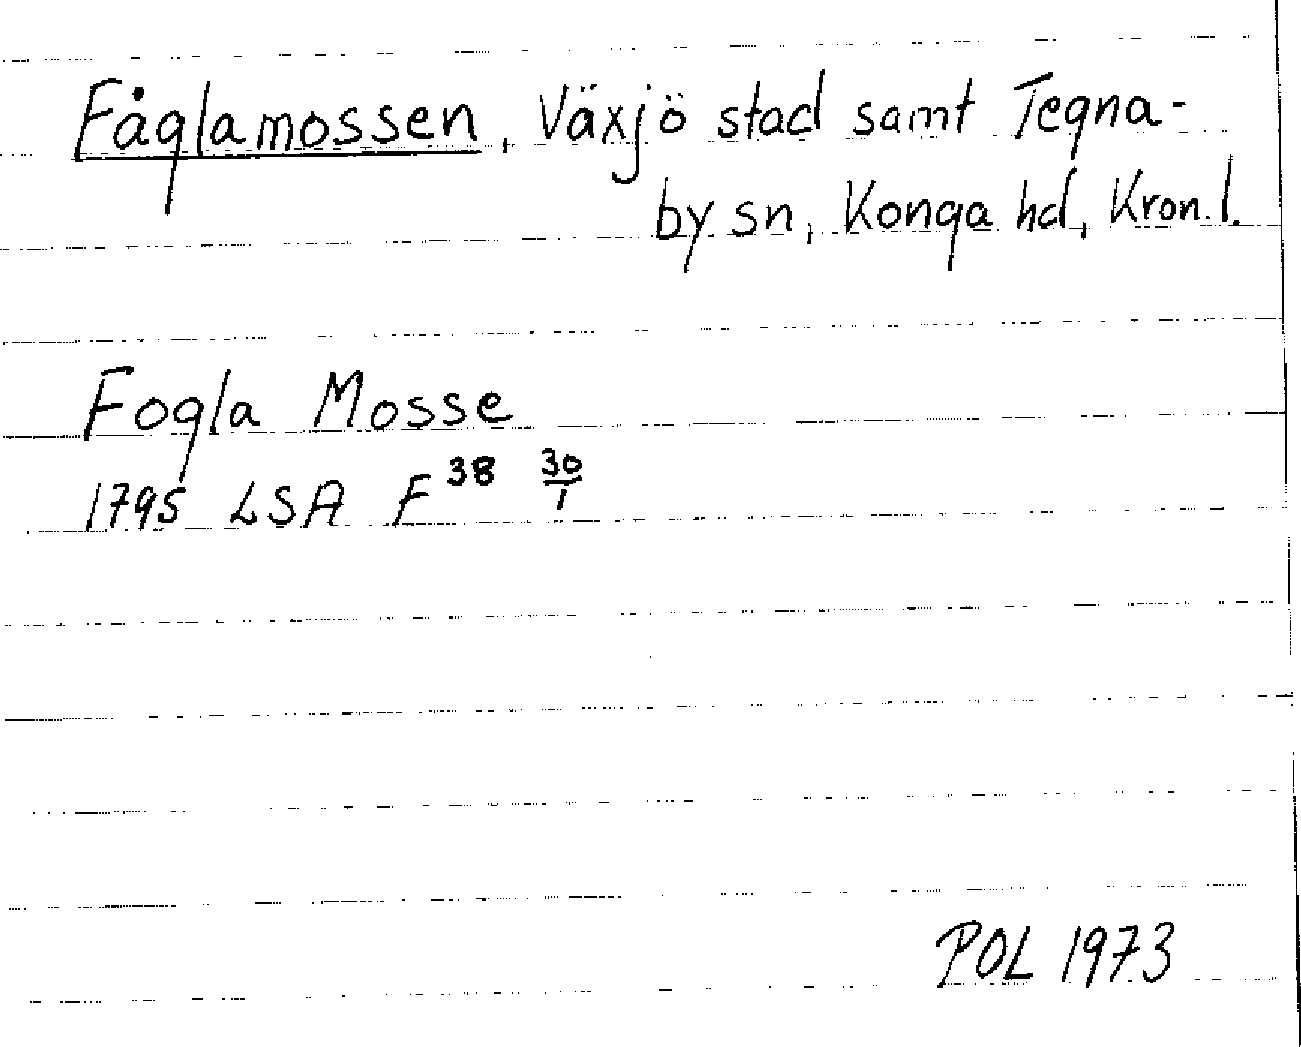 Fåglamossen, Växjö stad samt Tegna-
by sn, Konga hd, Kron. l.
Fogla Mosse
1795 LSA F 38 30/1
POL 1973